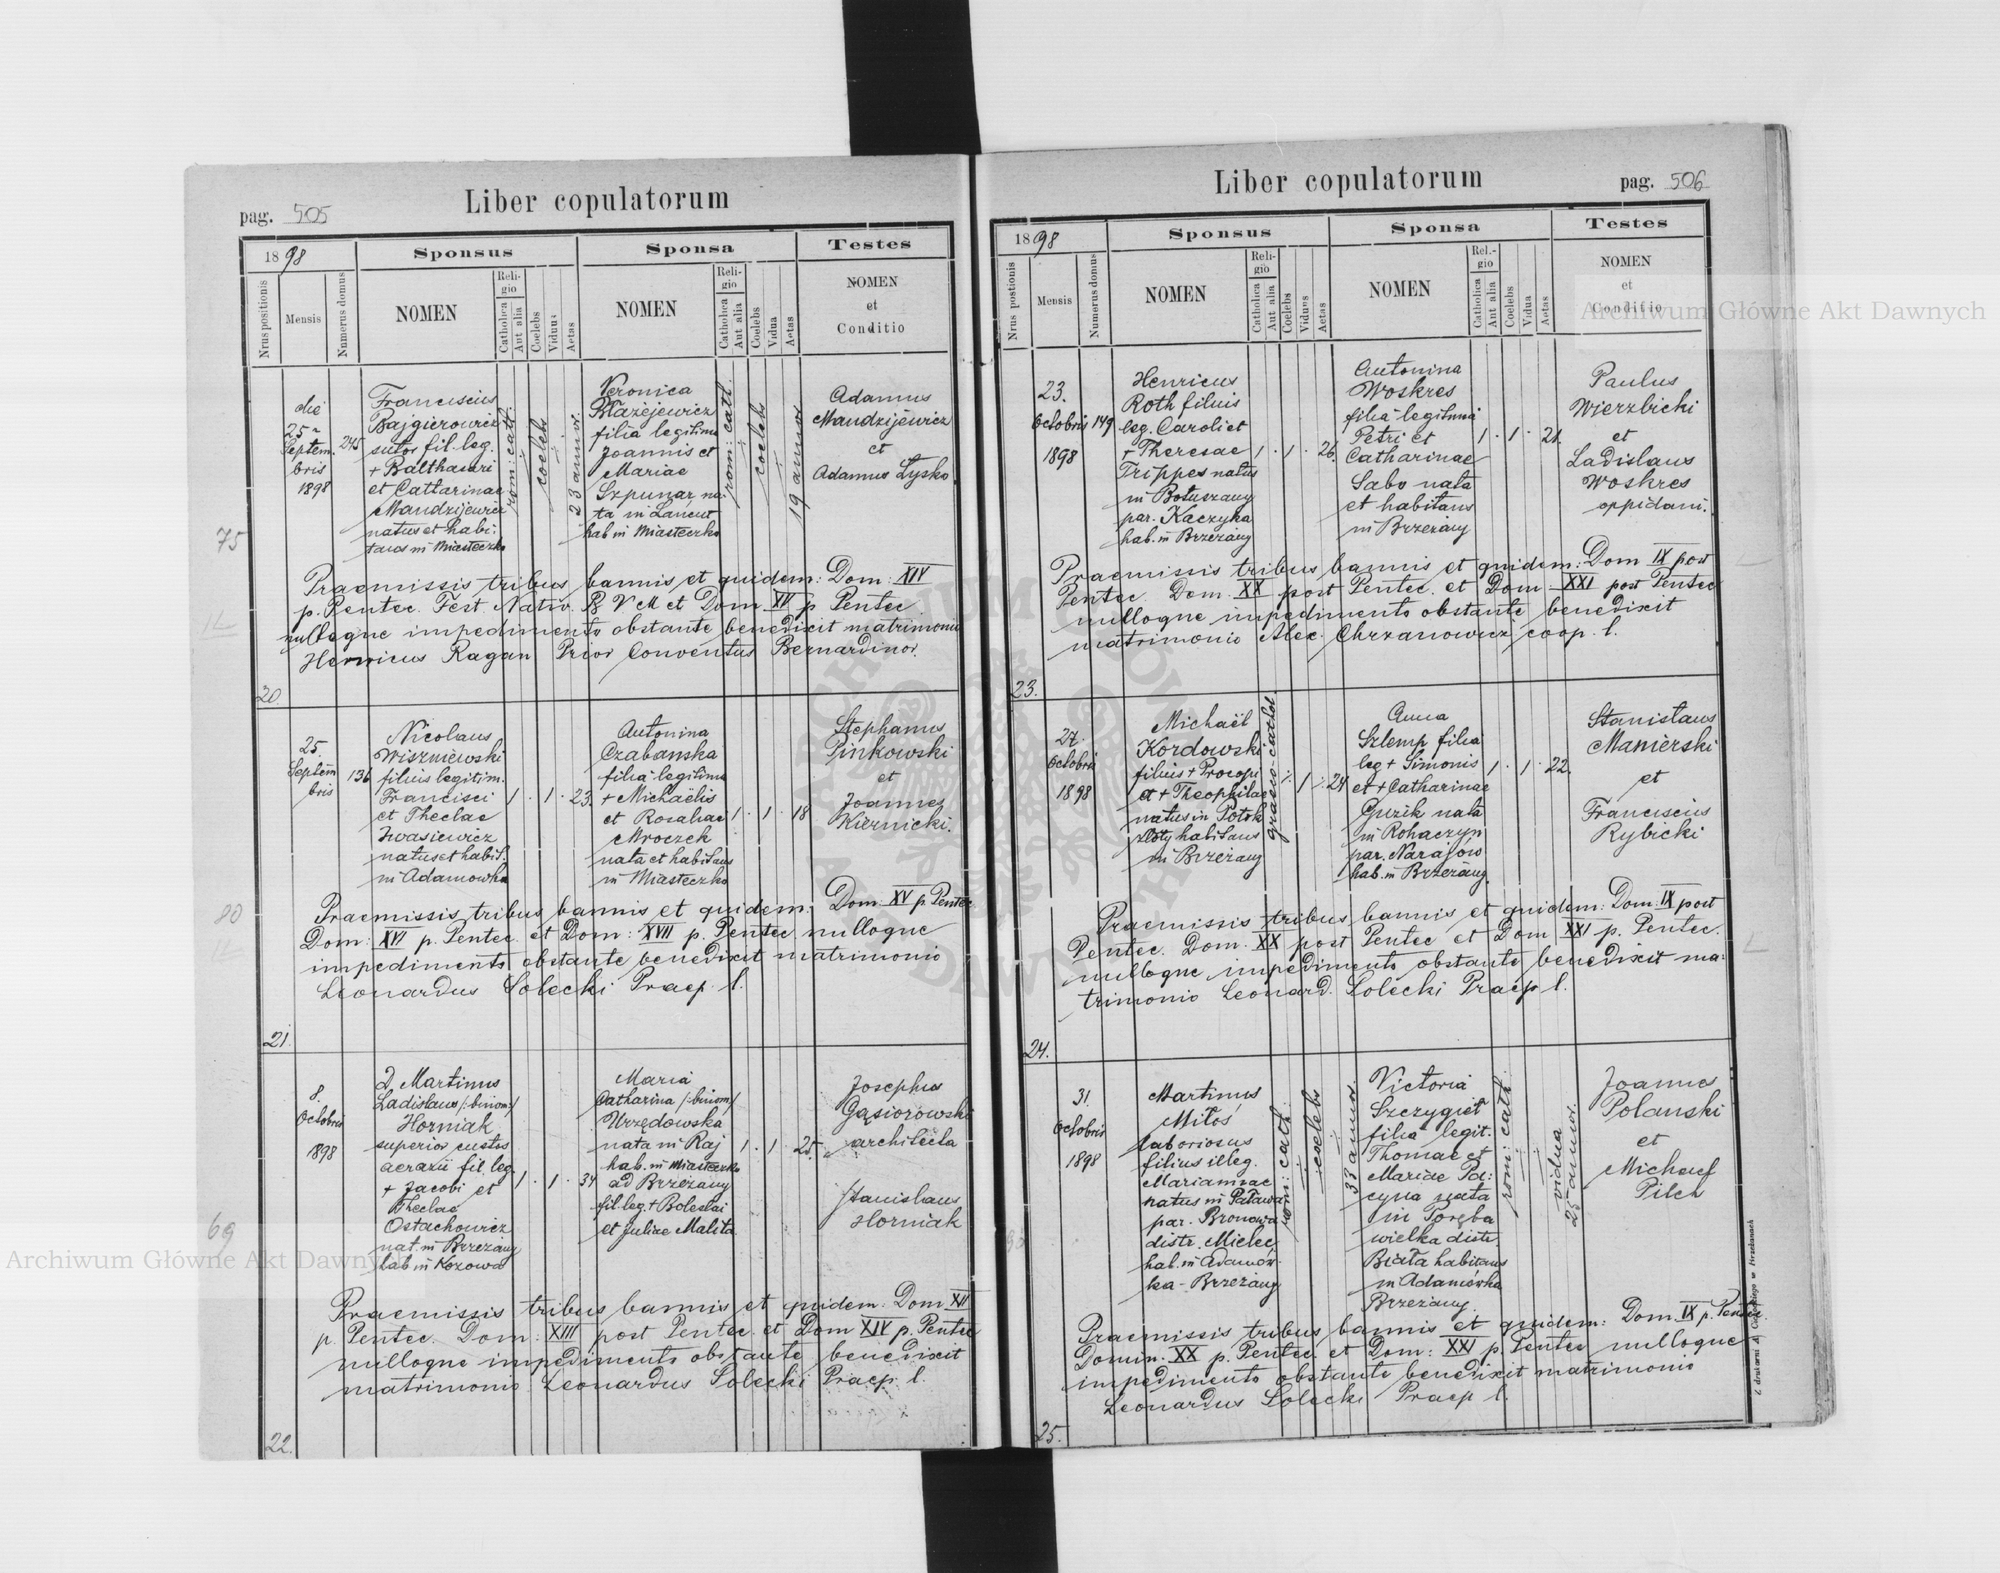 Liber copulatorum
pag. 505
1898
Sponsus
Sponsa
Testes
Nrus positionis
Mensis
Numerus domus
NOMEN
Religio
Catholica
Aut alia
Coelebs
Viduus
Aetas
NOMEN
Religio
Catholica
Aut alia
Coelebs
Vidua
Aetas
NOMEN
et
Conditio
20
die
25a
Septem
bris
1898
245
Franciscus
Bajgierowicz
sutor fil. leg.
+ Balthasari
et Catharinae
Mandzijewicz
natus et habi:
tans in Miasteczko
rom: cath.
coelebs
23 annor.
Veronica
Błażejewicz
filia legitima
Joannis et
Mariae
Szpunar na:
ta in Łancut
hab in Miasteczko
rom: cath.
coelebs
19 annor
Adamus
Mandzijewicz
et
Adamus Łysko
Praemissis tribus bannis et quidem: Dom: XIV
p. Pentec. Fest. Nativ. B V M et Dom XV p Pentec.
nulloque impedimento obstante benedixit matrimonio
Henricus Ragan Prior Conventus Bernardinor.
75
21.
25.
Septem
bris
136
Nicolaus
Wiszniewski
filius legitim.
Francisci
et Theclae
Iwasiewicz
natus et habit.
in Adamowka
1 . 1 . 23.
Antonina
Czabanska
filia legitima
+ Michaëlis
et Rosaliae
Mroczek
nata et habitans
in Miasteczko
1 . 1 . 18
Stephanus
Pinkowski
et
Joannes
Kiernicki.
Praemissis tribus bannis et quidem: Dom. XV p. Pentec
Dom: XVI p. Pentec. et Dom: XVII p. Pentec nulloque
impedimento obstante benedixit matrimonio
Leonardus Solecki Praep. l.
80
22.
8.
Octobris
1898
D Martinus
Ladislaus /: binom:/
Horniak
superior custos
aerarii fil. leg.
+ Jacobi et
Theclae
Ostachowicz
nat. in Brzeżany
hab in Kozowa
1 . 1 . 34
Maria
Catharina /: binom:/
Urzędowska
nata in Raj
hab. in Miasteczko
ad Brzeżany
fil. leg. + Boleslai
et Juliae Malita
1 . 1 . 25.
Josephus
Gąsiorowski
architecta
Stanislaus
Horniak
Praemissis tribus bannis et quidem: Dom XII
p. Pentec. Dom: XIII post Pentec. et Dom XIV p. Pentec
nulloque impedimento obstante benedixit
matrimonio Leonardus Solecki Praep. l.
69
Liber copulatorum
pag. 506
1898
Sponsus
Sponsa
Testes
Nrus postionis
Mensis
Numerus domus
NOMEN
Religio
Catholica
Aut alia
Coelebs
Viduus
Aetas
NOMEN
Rel.-gio
Catholica
Aut alia
Coelebs
Vidua
Aetas
NOMEN
et
Conditio
23.
23.
Octobris
1898
149
Henricus
Roth filius
leg. Caroli et
+ Theresae
Trippes natus
in Botuszany
par. Kaczyka
hab. in Brzeżany
1 . 1 . 26.
Antonina
Woskres
filia legitima
Petri et
Catharinae
Sabo nata
et habitans
in Brzeżany
1 . 1 . 21.
Paulus
Wierzbicki
et
Ladislaus
Woskres
oppidani.
Praemissis tribus bannis et quidem: Dom IX post
Pentec. Dom. XX post Pentec. et Dom XXI post Pentec
nulloque impedimento obstante benedixit
matrimonio Alec. Chrzanowicz coop. l.
24.
27.
Octobris
1898
Michaël
Kordowski
filius + Procopi
et + Theophilae
natus in Potok
złoty habitans
in Brzeżany
graeco-cathol.
1 . 24
Anna
Szlemp filia
leg + Simonis
et + Catharinae
Guzik nata
in Rohaczyn
par. Narajów
hab. in Brzeżany.
1 . 1 . 22.
Stanislaus
Manierski
et
Franciscus
Rybicki
Praemissis tribus bannis et quidem: Dom. IX post
Pentec. Dom. XX post Pentec et Dom XXI p. Pentec.
nulloque impedimento obstante benedixit ma:
trimonio Leonard. Solecki Praep l.
25.
31.
Octobris
1898
Martinus
Miłoś
laboriosus
filius illeg.
Mariannae
natus in Patawa
par. Bronowa
distr. Mielec
hab. in Adamów
ka - Brzeżany
rom: cath.
coelebs
33 annor.
Victoria
Szczygieł
filia legit.
Thomae et
Mariae Pa:
cyna nata
in Poręba
wielka distr
Biała habitans
in Adamówka
Brzeżany.
rom: cath.
vidua
25 annor.
Joannes
Polanski
et
Michael
Pilch
Praemissis tribus bannis et quidem: Dom IX p. Pentec.
Domin. XX p. Pentec. et Dom: XXI p. Pentec nulloque
impedimento obstante benedixit matrimonio
Leonardus Solecki Praep l.
Archiwum Główne Akt Dawnych
Archiwum Główne Akt Dawnych